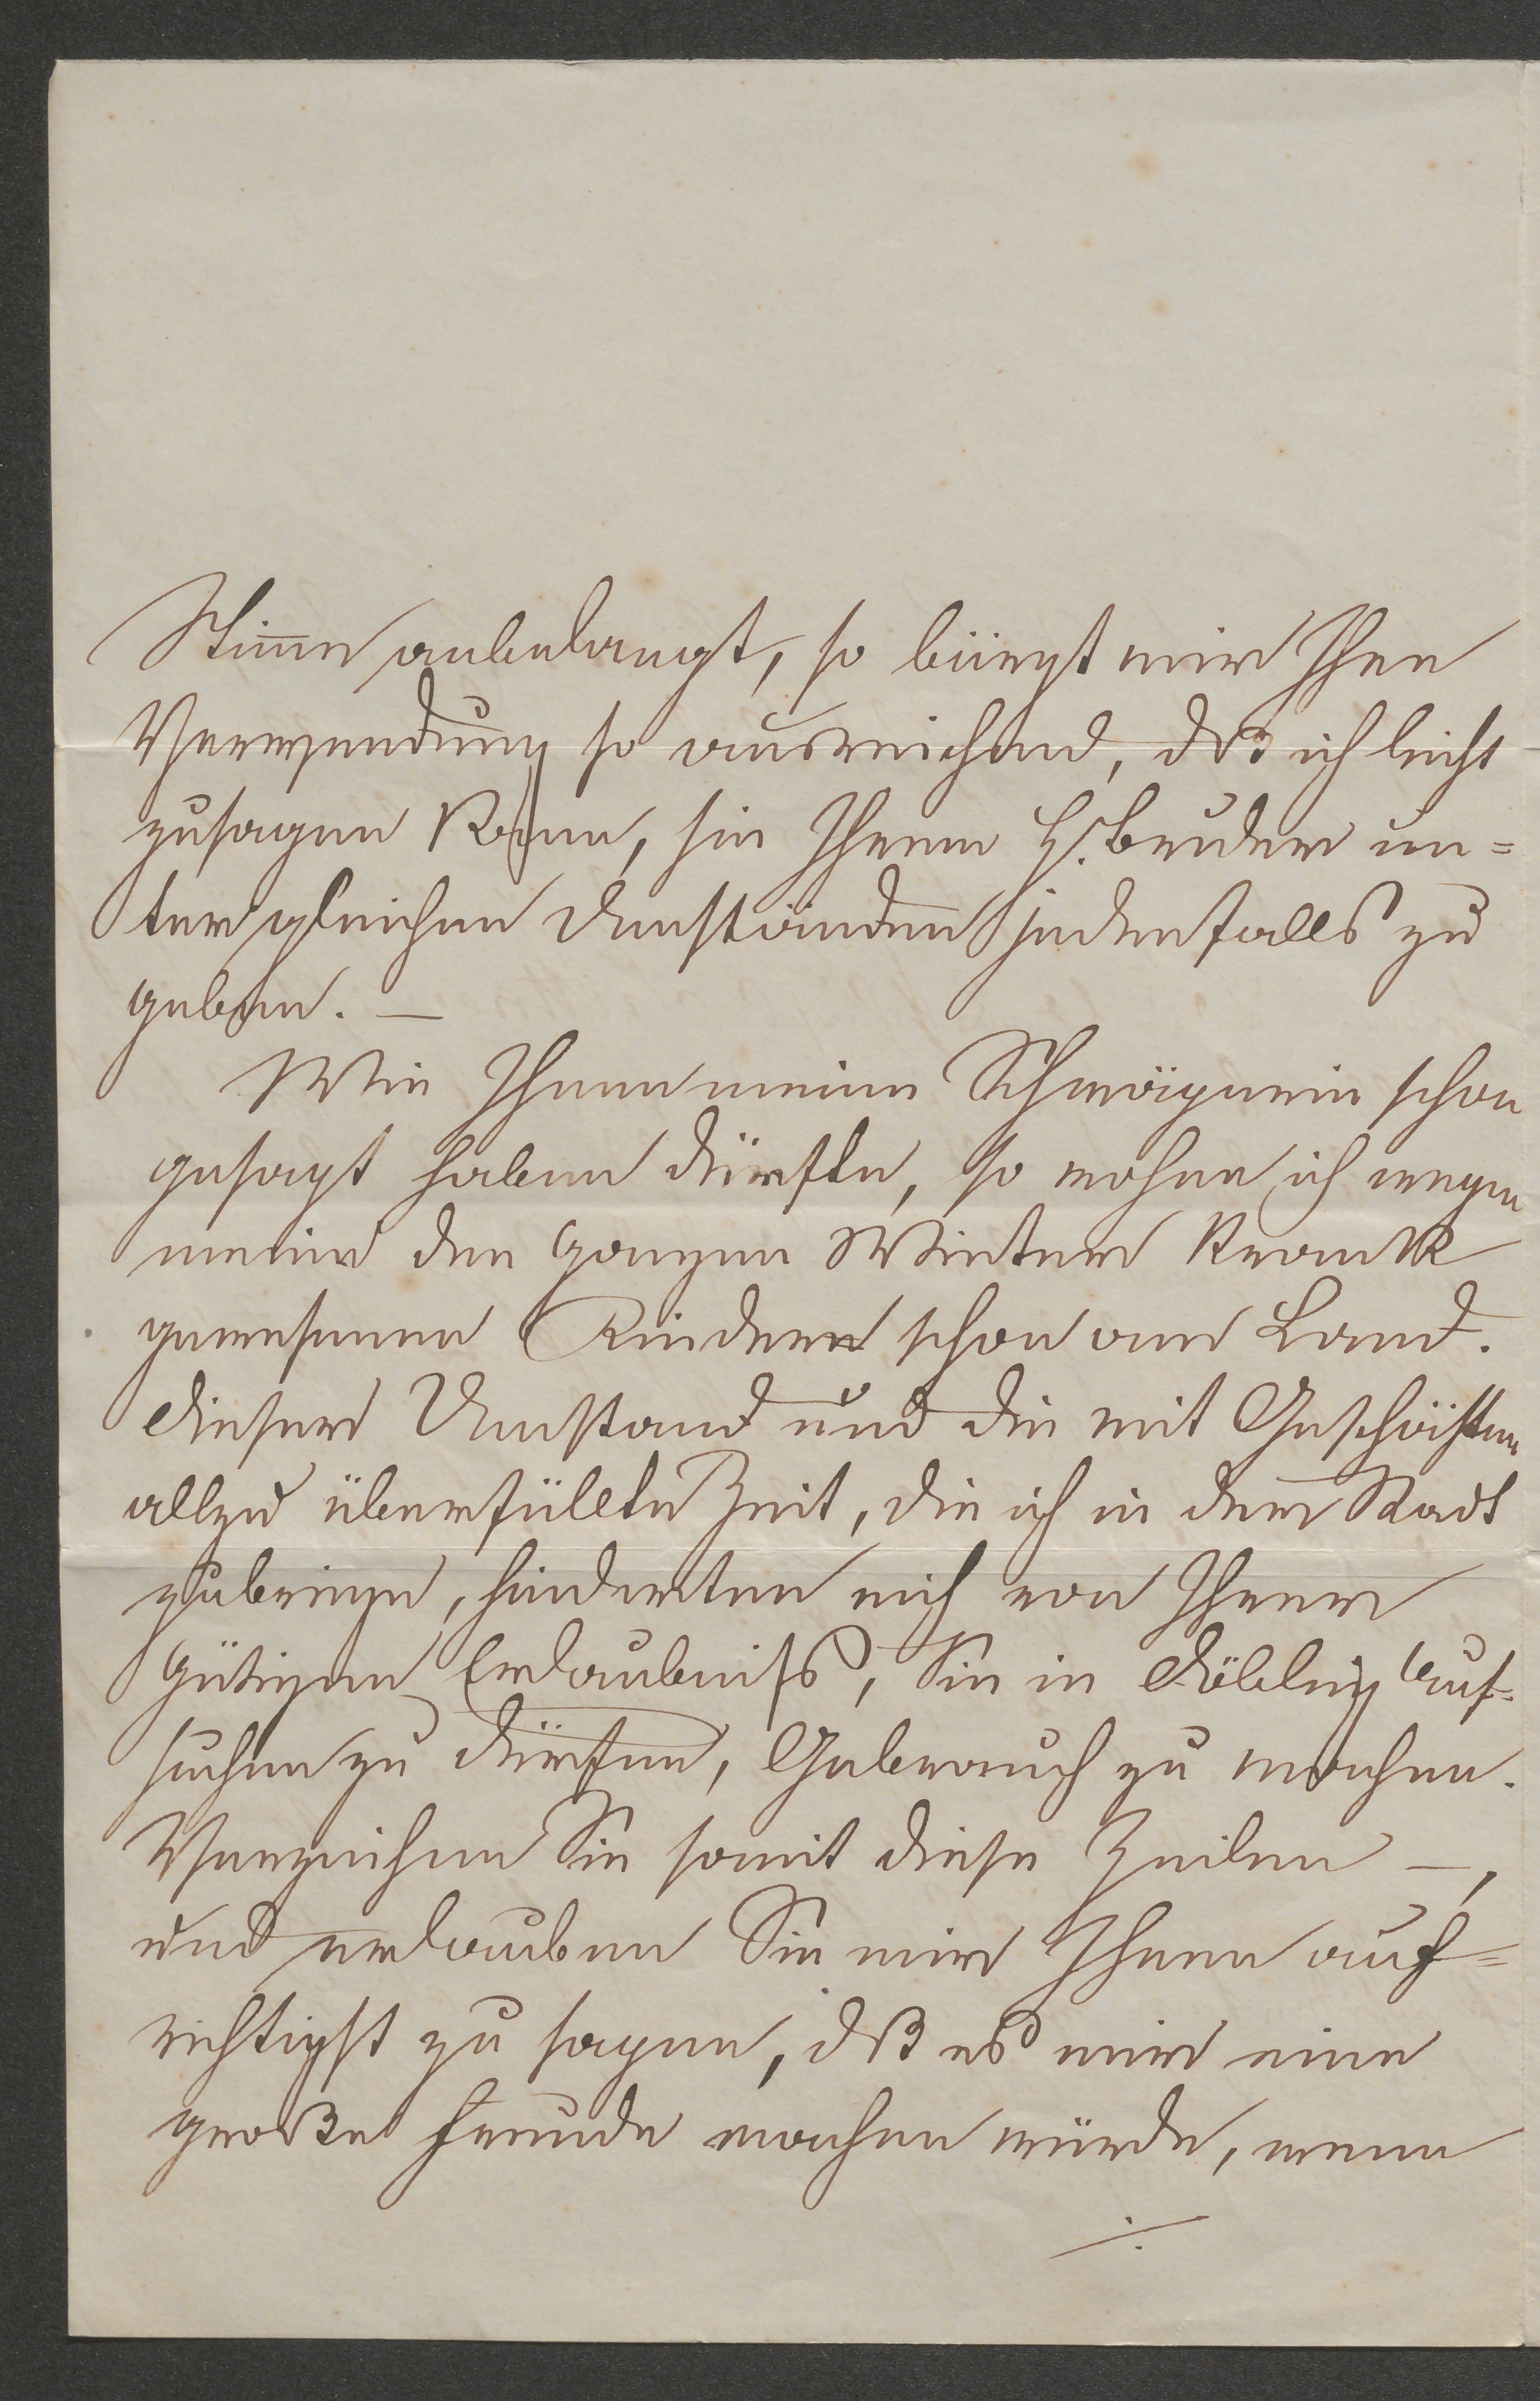 Stimme anbelangt, so bürgt mir Ihre
Verwendung so ausreichend, dß ich leicht
zusagen kann, sie Ihrem H. Bruder un=
ter gleichen Umständen jedenfalls zu
geben. —
Wie Ihnen meine Schwägerin schon
gesagt haben dürfte, so wohne ich wegen
meiner den ganzen Winter krank
gewesenen Kinder schon am Land.
Dieser Umstand und die mit Geschäften
allzu überfüllte Zeit, die ich in der Stadt
zubringe, hinderten mich von Ihrer
gütigen Erlaubniß, Sie in Döbling auf-
suchen zu dürfen, Gebrauch zu machen.
Verzeihen Sie somit diese Zeilen —,
und erlauben Sie mir Ihnen auf=
richtigst zu sagen, dß es mir eine
große Freude machen würde, wenn
./.